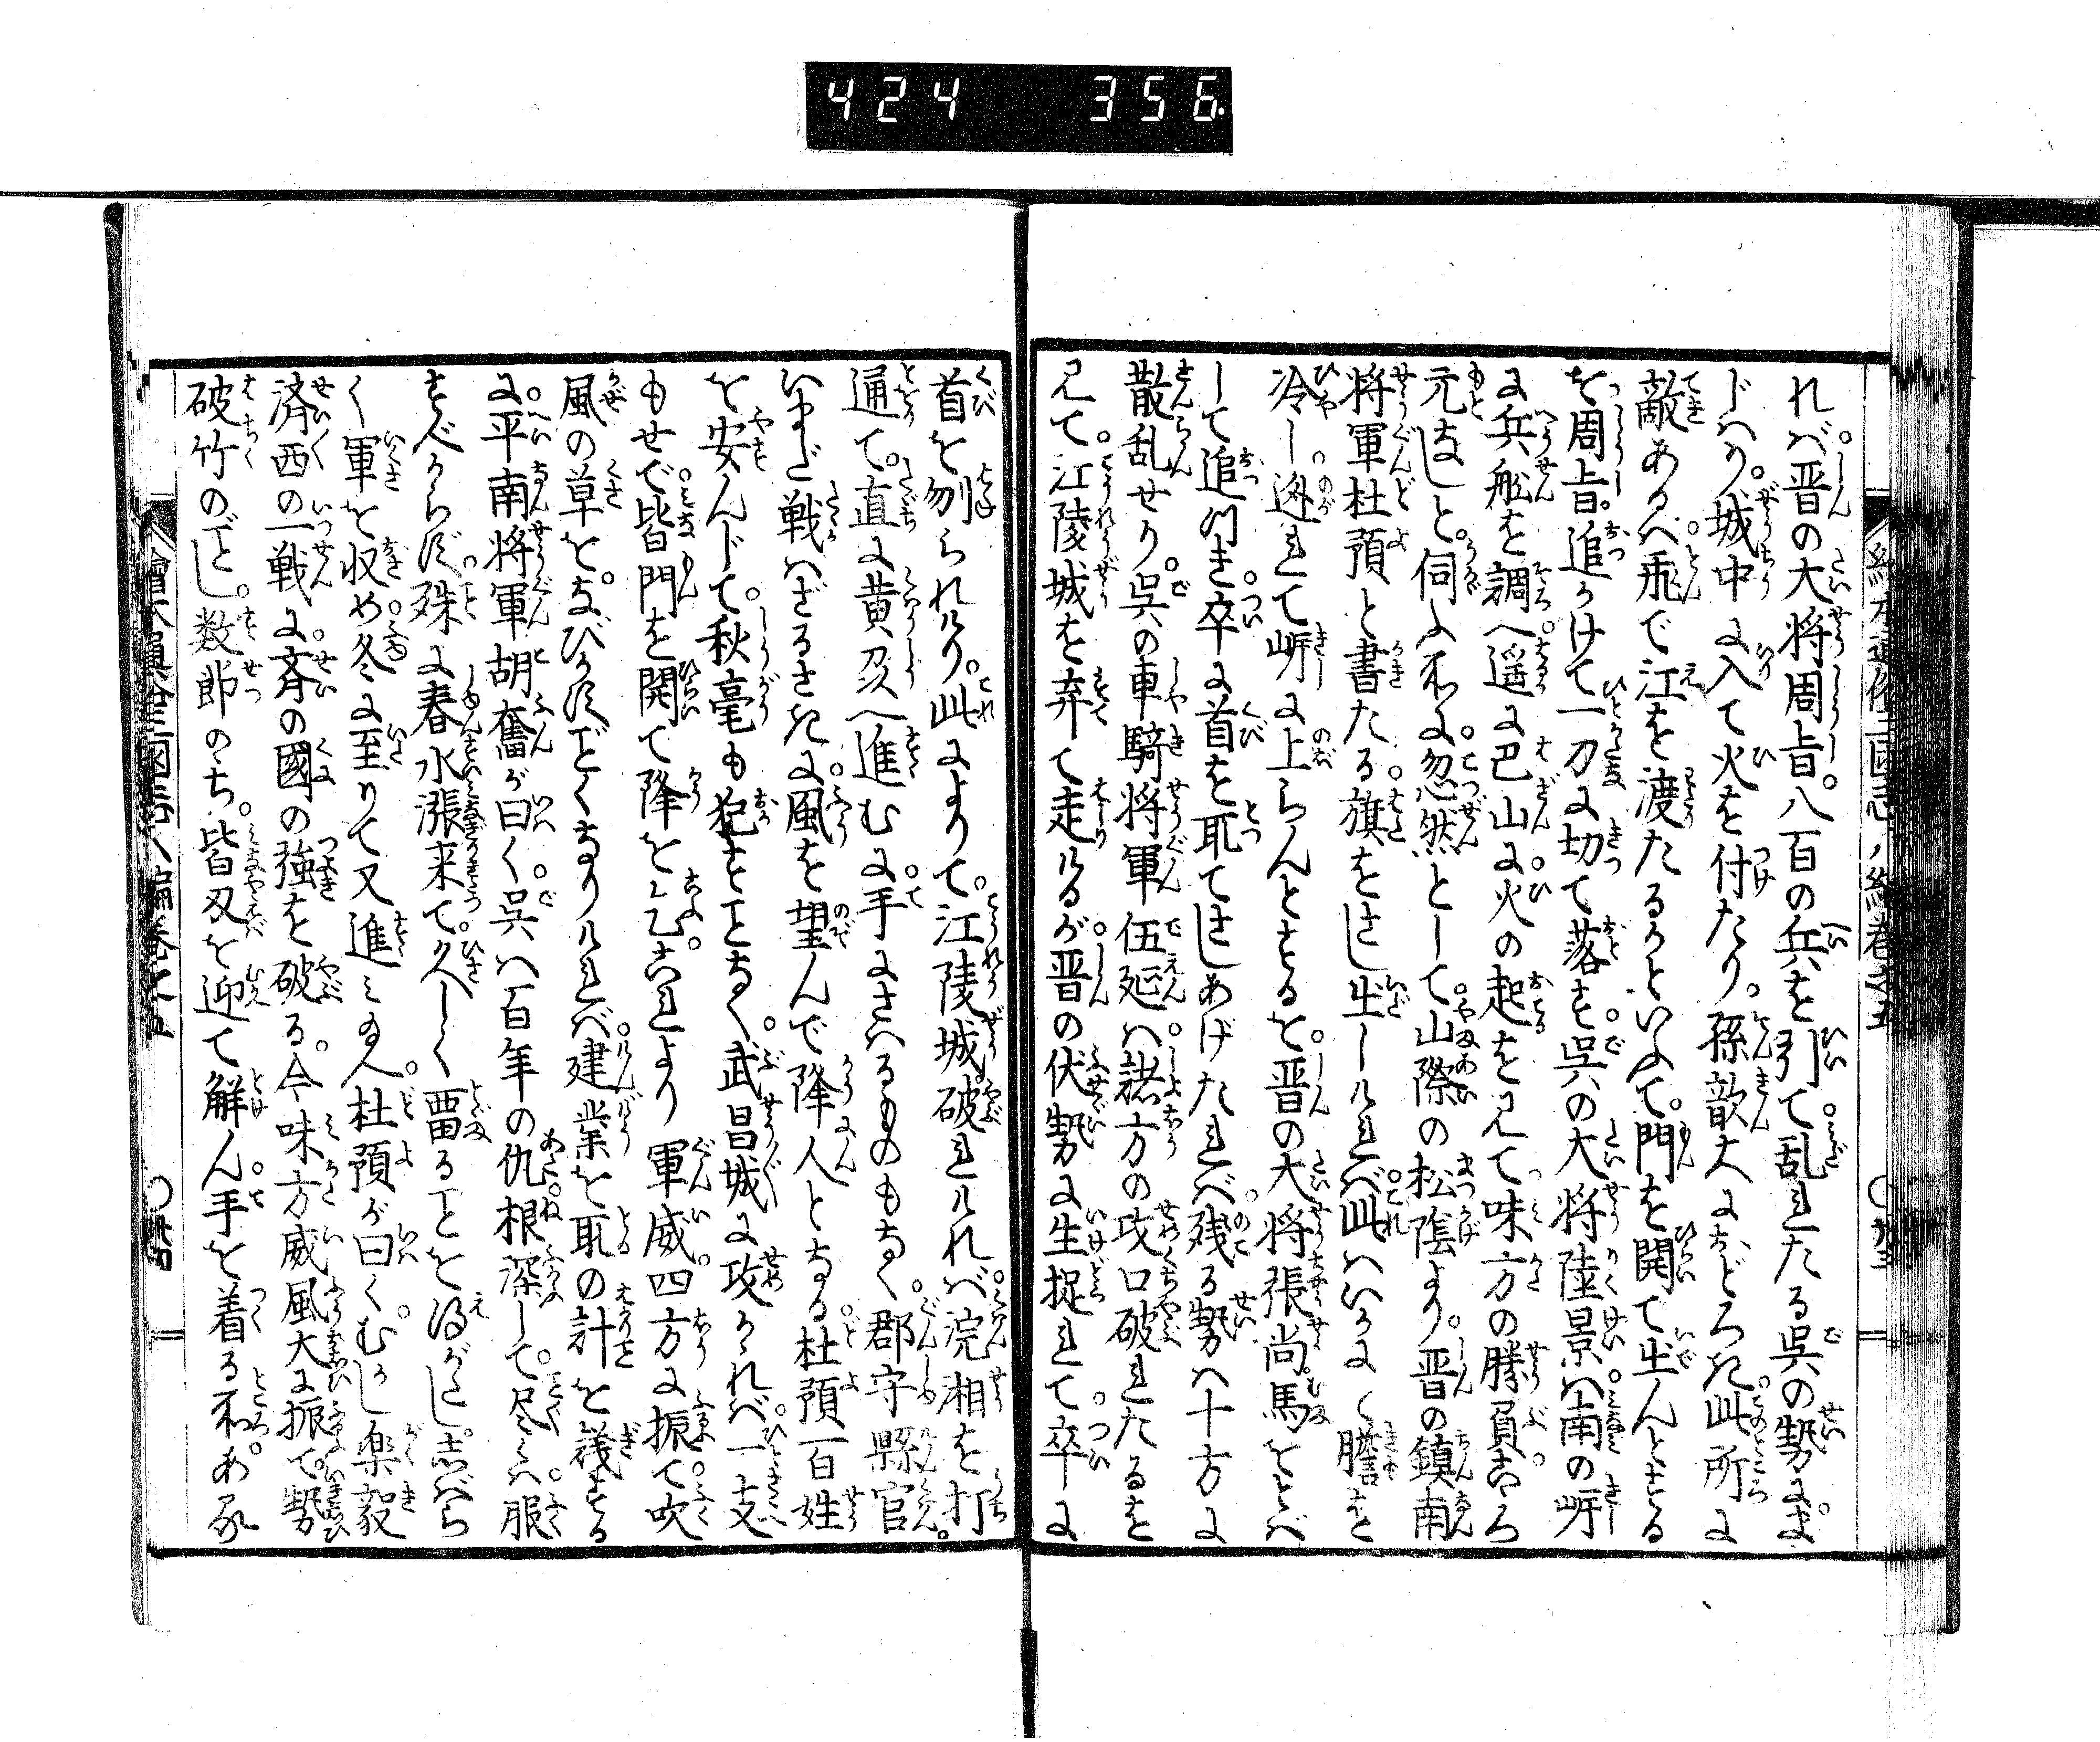 424 356
れば。晋の大将周旨。八百の兵を引て。乱れたる呉の勢にま
じハり。城中に入て火を付たり。孫歆大におどろき。此所に
敵あるハ。飛で江を渡たるかといふて。門を開て出んとする
を周旨。追かけて一刀に切て落す。呉の大将陸景ハ。南の岍
に兵舩を調へ。遥に巴山に。火の起を見て。味方の勝負。こゝろ
元なしと。伺ふ所に。忽然として。山際の松陰より。晋の鎮南
将軍杜預と書たる。旗をさし出しければ。此ハいかにと膽を
冷し。迯れて岍に上らんとするを。晋の大将張尚。馬をとば
して追つき。卒に首を取てさしあげたれバ。残る勢ハ十方に
散乱せり。呉の車騎将軍伍延ハ。諸方の攻口破れたるを
見て。江陵城を弃て走けるが。晋の伏勢に生捉れて。卒に
首を刎られけり。此によりて。江陵城破れければ。沅湘を打
通て。直に黄州へ進むに。手にさハるものもなく。郡守縣官
いまだ戦ハざるさきに。風を望んで降人となる。杜預百姓
を安んじて。秋毫も犯すことなく。武昌城に攻かれバ。一支
もせで。皆門を開て降を乞。これより軍威。四方に振て。吹
風の草を。なびかすごとくなりければ。建業を取の計を議する
に。平南将軍胡奮が曰く。呉ハ百年の仇。根深して。尽くハ服
すべからず。殊に春水漲来て。久しく畱ることを得がたし。志ばら
く軍を収め。冬に至りて又進ミ玉へ。杜預が曰く。むかし楽毅
済西の一戦に。斉の國の強を破る。今味方威風大に振て。勢
破竹のごとし。数節のち。皆刃を迎て解ん。手を着る所。あら